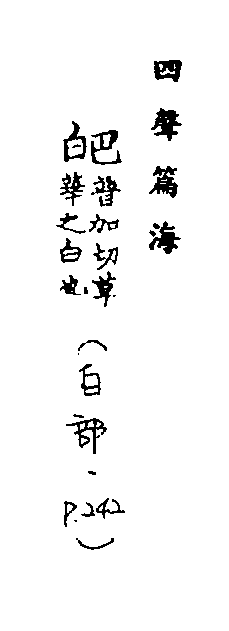 四聲篇海
皅普加切草華之白也(白部、P.242)